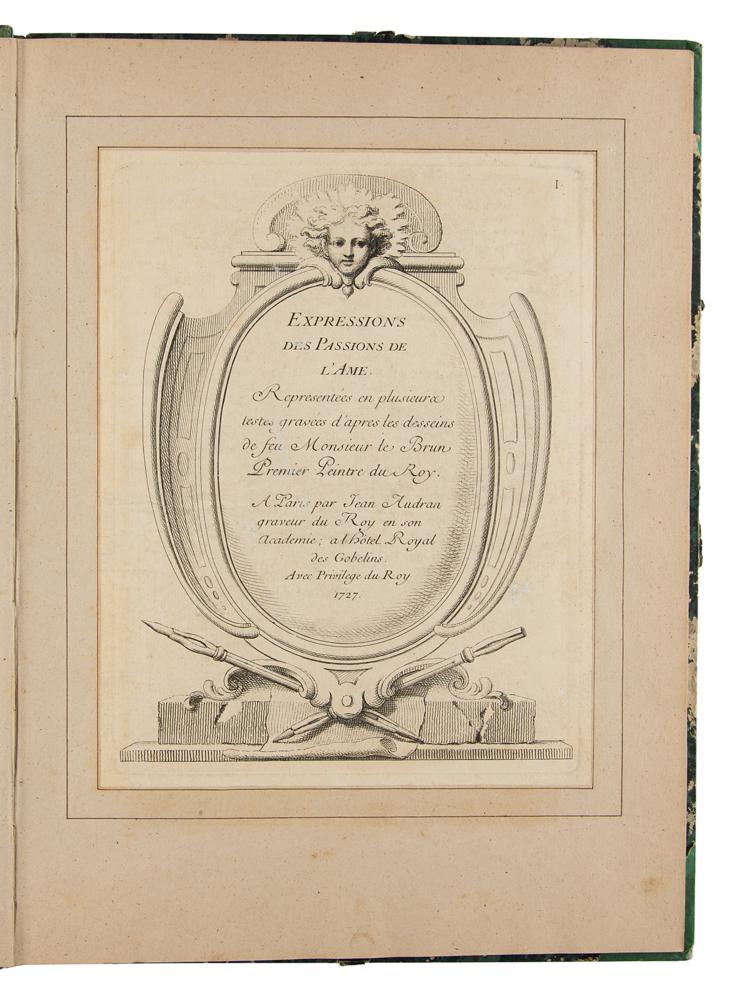 1.
EXPRESSIONS
DES PASSIONS DE
L'AME.
Representées en plusieurs
testes gravées d'apres les desseins
de feu Monsieur le Brun
Premier Peintre du Roy.
A Paris par Jean Audran
graveur du Roy en son
Academie; a l'hôtel Royal
des Gobelins.
Avec Privilege du Roy
1727.